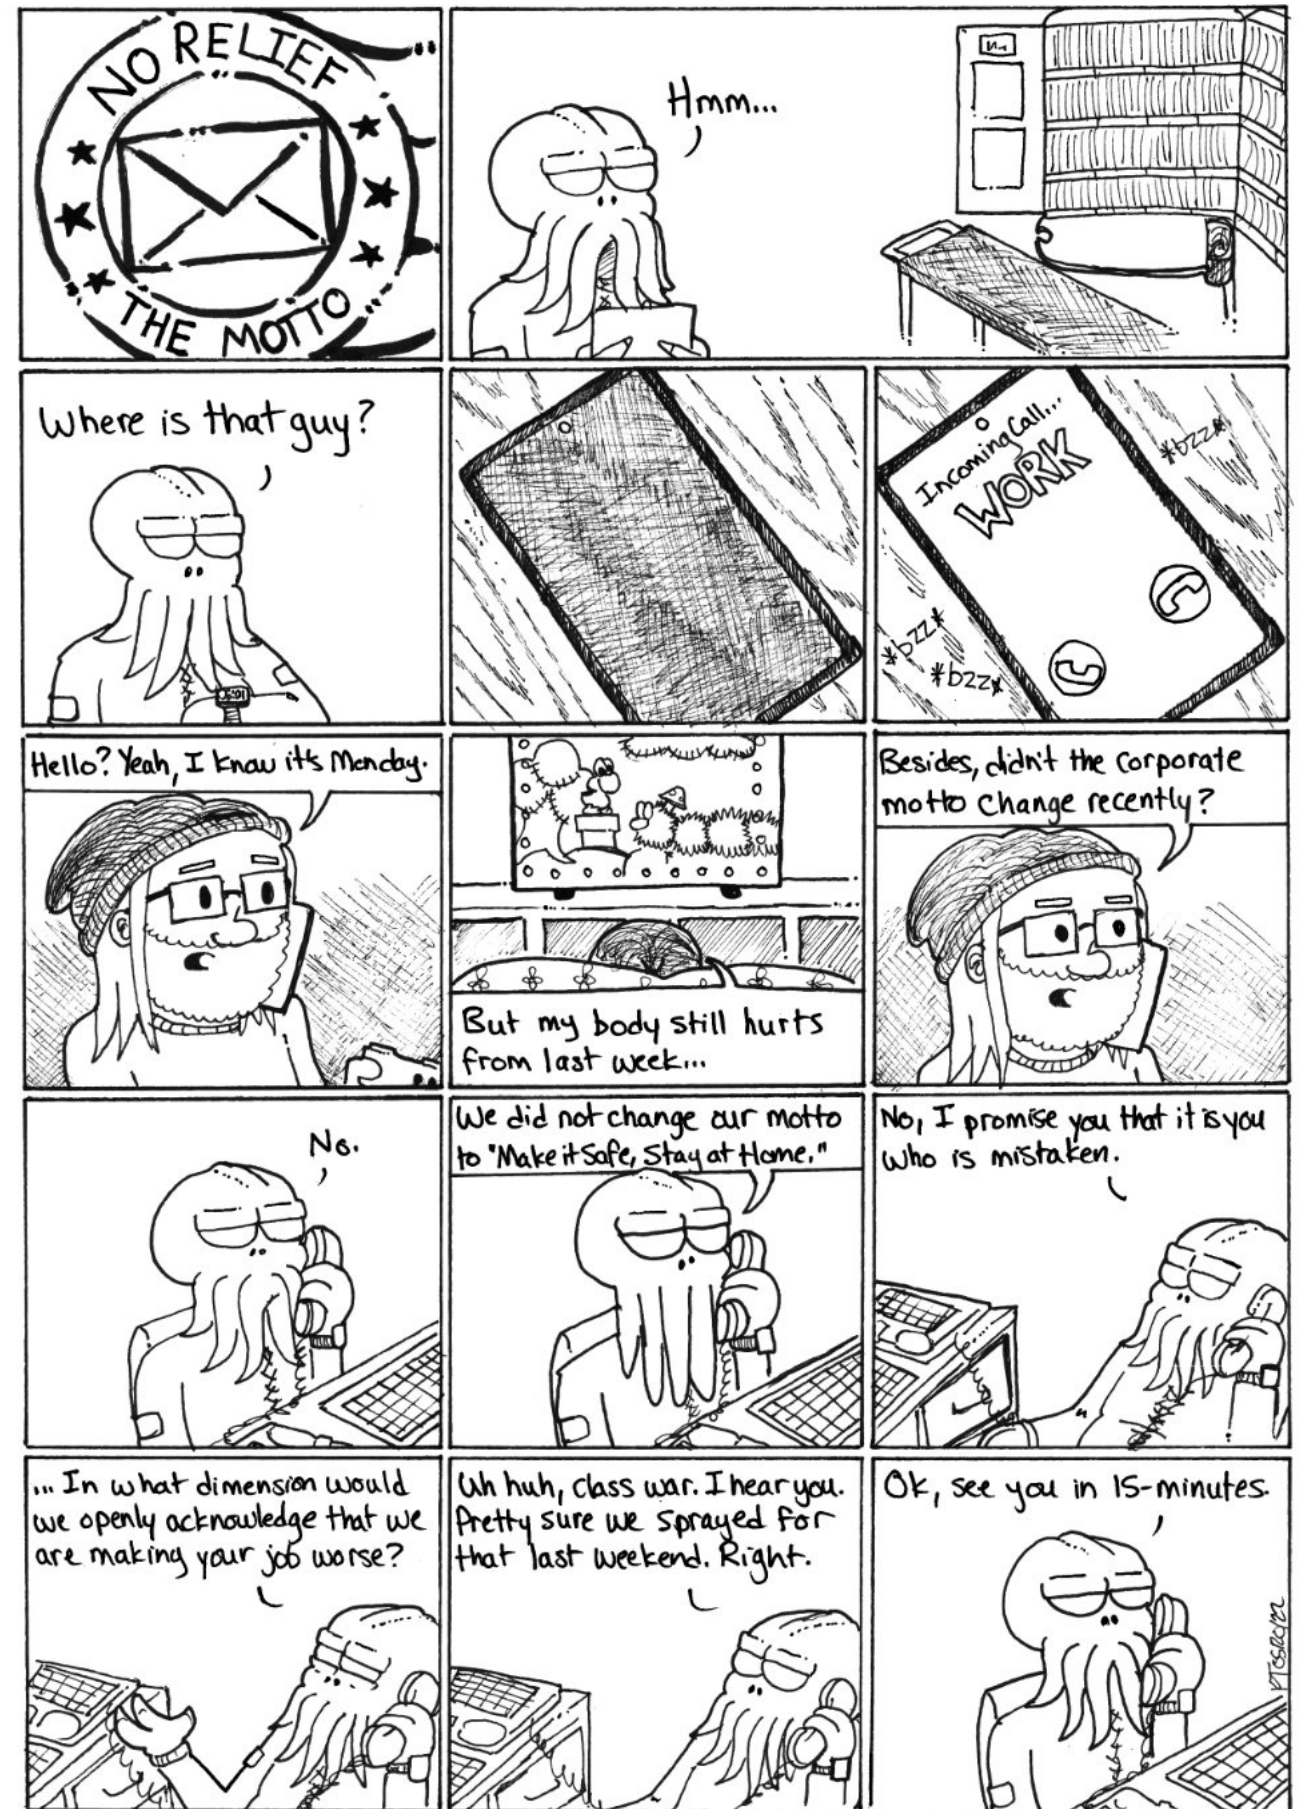 NO RELIEF
THE MOTTO
Hmm...
Where is that guy?
Incoming Call...
WORK
*bzz*
*bzz*
*bzz*
Hello? Yeah, I know it's Monday.
But my body still hurts
from last week...
Besides, didn't the corporate
motto change recently?
No.
We did not change our motto
to "Make it Safe, Stay at Home."
No, I promise you that it is you
who is mistaken.
... In what dimension would
we openly acknowledge that we
are making your job worse?
Uh huh, class war. I hear you.
Pretty sure we sprayed for
that last weekend. Right.
Ok, see you in 15-minutes.